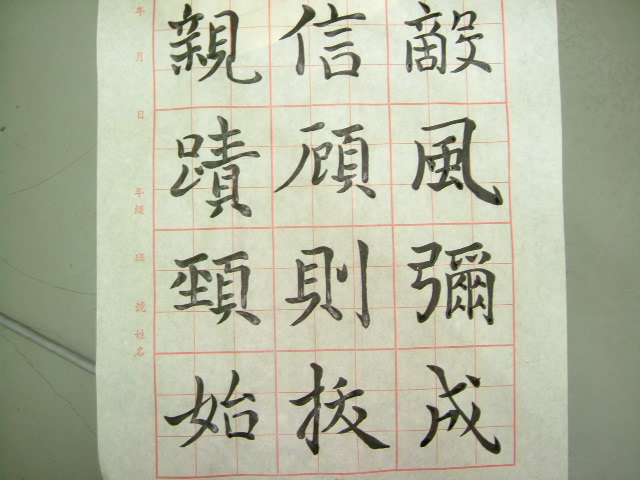 敵風彌成
信顧則拔
親蹟頸始
年 月 日 年級 班 號 姓名